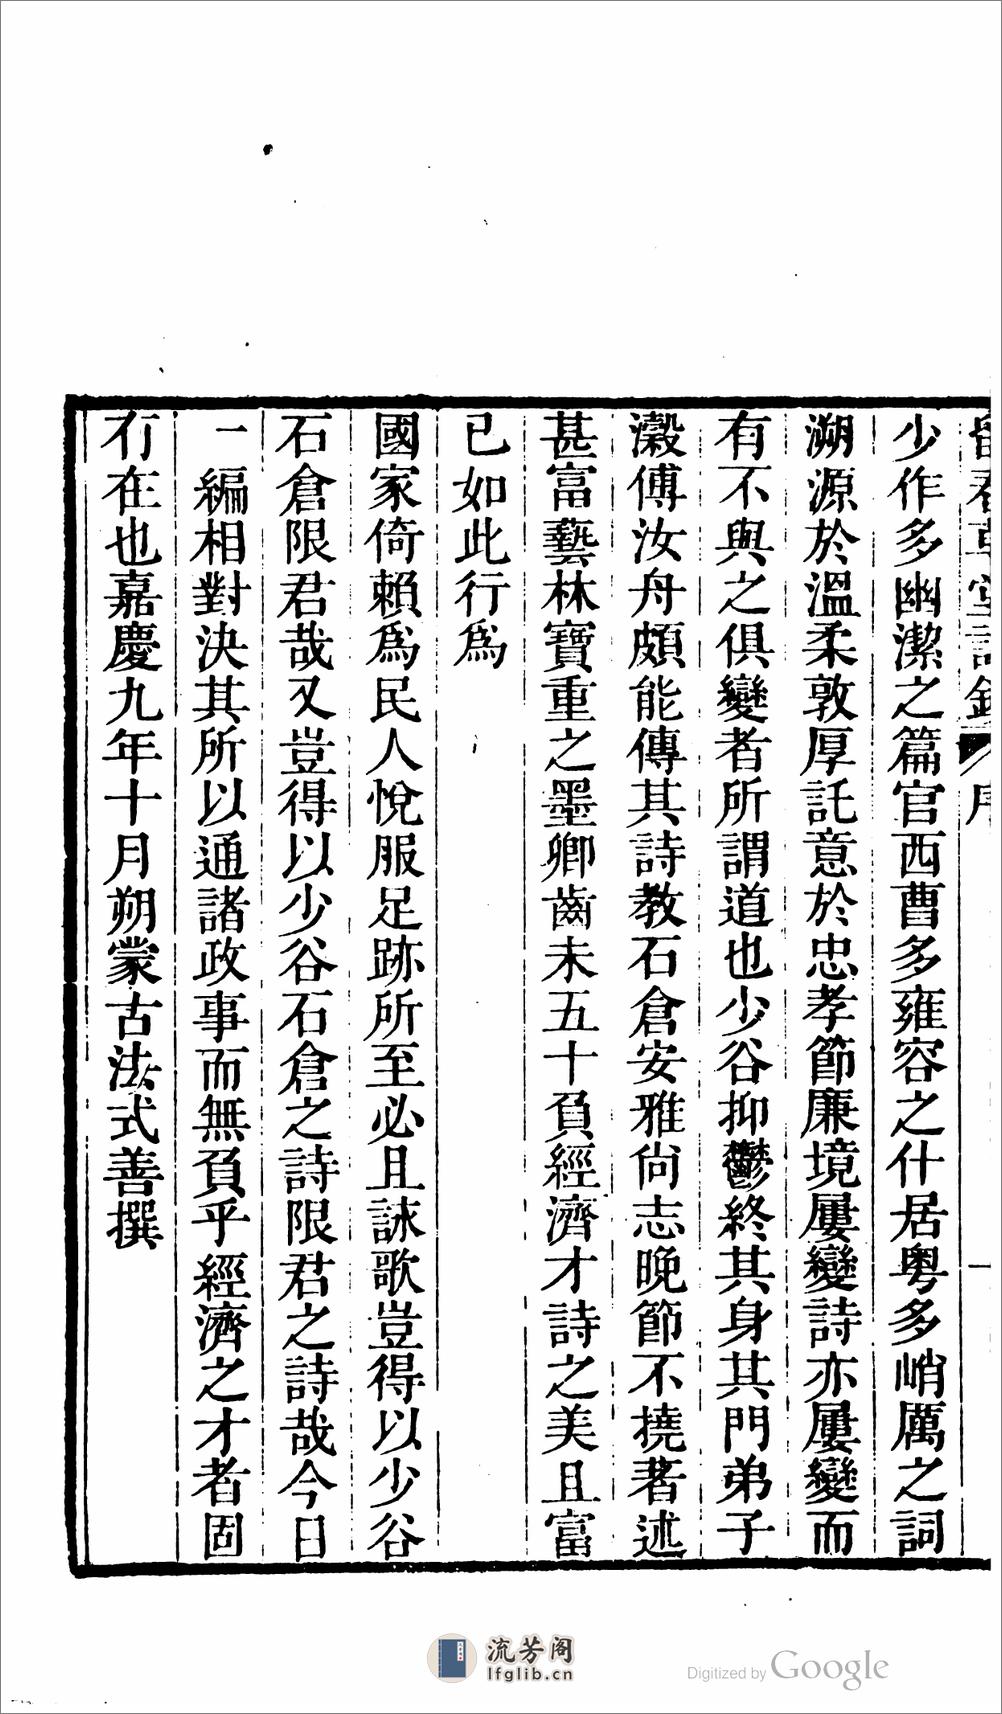 留春草堂詩鈔 序 一
少作多幽潔之篇官西曹多雍容之什居粵多峭厲之詞
溯源於溫柔敦厚託意於忠孝節廉境屢變詩亦屢變而
有不與之俱變者所謂道也少谷抑鬱終其身其門弟子
瀔傅汝舟頗能傳其詩教石倉安雅尙志晚節不撓著述
甚富藝林寶重之墨卿齒未五十負經濟才詩之美且富
已如此行爲
國家倚賴爲民人悅服足跡所至必且詠歌豈得以少谷
石倉限君哉又豈得以少谷石倉之詩限君之詩哉今日
一編相對決其所以通諸政事而無負乎經濟之才者固
有在也嘉慶九年十月朔蒙古法式善撰
流芳阁
lfglib.cn
Digitized by Google